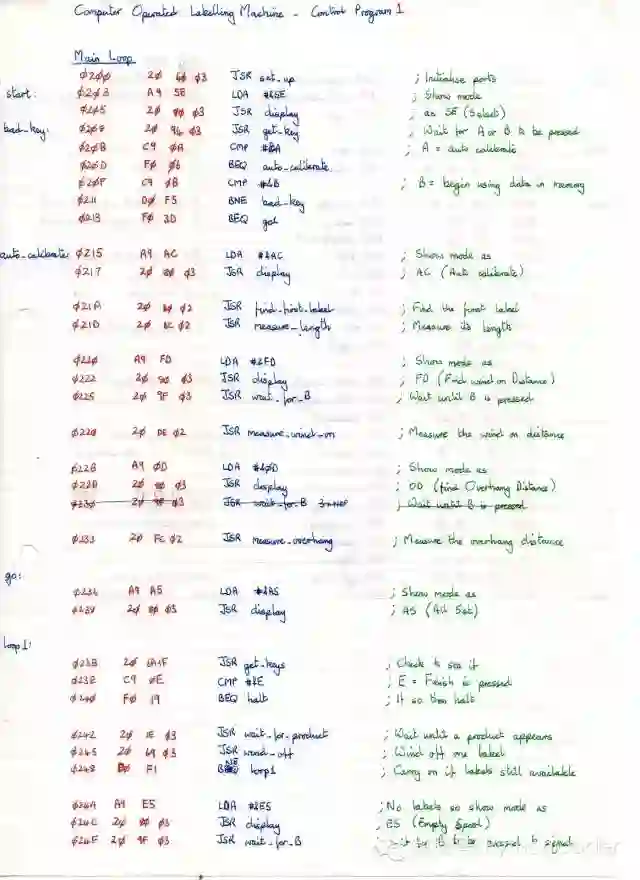 Computer Operated Labelling Machine - Control Program 1
Main Loop
0200 20 60 03 JSR set_up ; Initialise ports
start: 0203 A9 5E LDA #&5E ; Show mode
0205 20 80 03 JSR display ; as SE (Select)
bad_key: 0208 20 96 03 JSR get_key ; Wait for A or B to be pressed
020B C9 0A CMP #&A ; A = auto calibrate
020D F0 06 BEQ auto_calibrate
020F C9 0B CMP #&B ; B = begin using data in memory
0211 D0 F5 BNE bad_key
0213 F0 3D BEQ go
auto_calibrate: 0215 A9 AC LDA #&AC ; Show mode as
0217 20 80 03 JSR display ; AC (Auto calibrate)
021A 20 02 JSR find_first_label ; Find the first label
021D 20 02 JSR measure_length ; Measure its length
0220 A9 FD LDA #&FD ; Show mode as
0222 20 80 03 JSR display ; FD (Find wind on Distance)
0225 20 9F 03 JSR wait_for_B ; Wait until B is pressed
0228 20 DE 02 JSR measure_wind_on ; Measure the wind on distance
022B A9 0D LDA #&0D ; Show mode as
022D 20 80 03 JSR display ; OD (find Overhang Distance)
0230 20 9F 03 JSR wait_for_B 3xNOP ; Wait until B is pressed
0233 20 FC 02 JSR measure_overhang ; Measure the overhang distance
go:
0236 A9 A5 LDA #&A5 ; Show mode as
0238 20 80 03 JSR display ; AS (All Set)
loop1:
023B 20 1F JSR get_keys ; Check to see if
023E C9 0E CMP #&E ; E = Finish is pressed
0240 F0 19 BEQ halt ; If so then halt
0242 20 1E 03 JSR wait_for_product ; Wait until a product appears
0245 20 03 JSR wind_off ; Wind off one label
0248 D0 F1 BNE loop1 ; Carry on if labels still available
024A A9 E5 LDA #&E5 ; No labels so show mode as
024C 20 80 03 JSR display ; ES (Empty Spool)
024F 20 9F 03 JSR wait_for_B to be pressed to signal